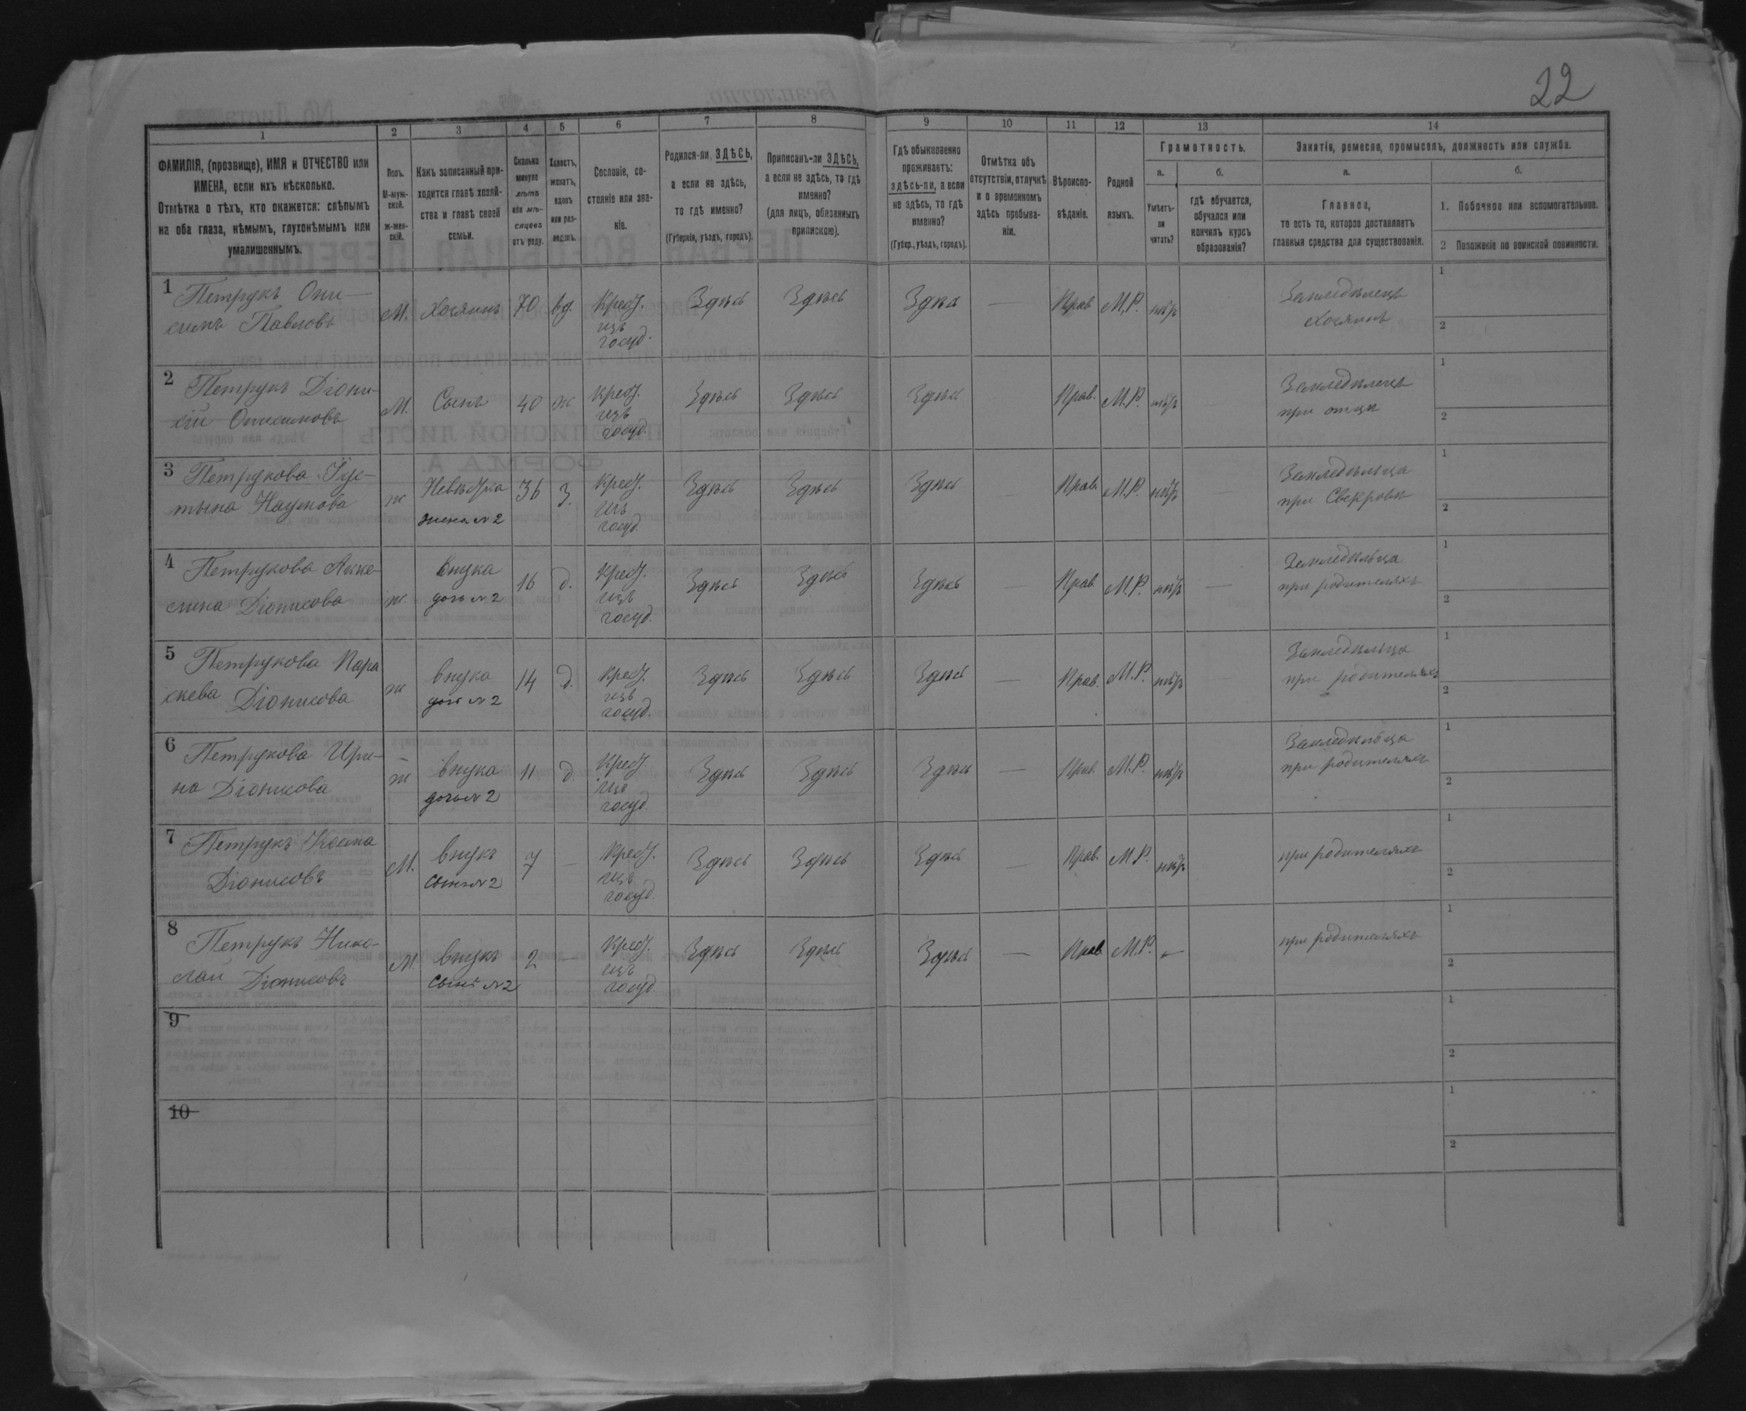 22
1 2 3 4 5 6 7 8 9 10 11 12 13 14
ФАМИЛІЯ, (прозвище), ИМЯ и ОТЧЕСТВО или
ИМЕНА, если ихъ нѣсколько.
Отмѣтка о тѣхъ, кто окажется: слѣпымъ
на оба глаза, нѣмымъ, глухонѣмымъ или
умалишеннымъ.
Полъ.
М-муж-
ской.
Ж-жен-
скій.
Какъ записанный при-
ходится главѣ хозяй-
ства и главѣ своей
семьи.
Сколько
минуло
лѣтъ
или мѣ-
сяцевъ
отъ роду.
Холостъ,
женатъ,
вдовъ
или раз-
веденъ.
Сословіе, со-
стояніе или зва-
ніе.
Родился-ли ЗДѢСЬ,
а если не здѣсь,
то гдѣ именно?
(Губернія, уѣздъ, городъ).
Приписанъ-ли ЗДѢСЬ,
а если не здѣсь, то гдѣ
именно?
(для лицъ, обязанныхъ
припискою).
Гдѣ обыкновенно
проживаетъ:
здѣсь-ли, а если
не здѣсь, то гдѣ
именно?
(Губер., уѣздъ, городъ).
Отмѣтка объ
отсутствіи, отлучкѣ
и о временномъ
здѣсь пребыва-
ніи.
Вѣроиспо-
вѣданіе.
Родной
языкъ.
Грамотность.
а.
Умѣетъ-
ли
читать?
б.
гдѣ обучается,
обучался или
кончилъ курсъ
образованія?
Занятіе, ремесло, промыселъ, должность или служба.
а.
Главное,
то есть то, которое доставляетъ
главныя средства для существованія.
б.
1. Побочное или вспомогательное.
2 Положеніе по воинской повинности.
1 Петрукъ Они-
симъ Павловъ
М. Хозяинъ 70 вд. Крест.
изъ
госуд.
Здѣсь Здѣсь Здѣсь — Прав М.Р. нѣтъ
Земледѣлецъ
Хозяинъ
1
2
2 Петрукъ Діони-
сій Онисимовъ
М. Сынъ 40 ж Крест.
изъ
госуд.
Здѣсь Здѣсь Здѣсь Прав. М.Р. нѣтъ
Земледѣлецъ
при отцѣ
1
2
3 Петрукова Іус-
тына Наумова
ж Невѣстка
жена №2
36 з. Крест.
изъ
госуд.
Здѣсь Здѣсь Здѣсь — Прав. М.Р. нѣтъ
Земледѣлица
при Свекровѣ
1
2
4 Петрукова
Діонисова
ж внука
дочь №2
16 д. Крест.
изъ
госуд.
Здѣсь Здѣсь Здѣсь — Прав М.Р. нѣтъ —
Земледѣлица
при родителяхъ
1
2
5 Петрукова Пара
скева Діонисова
ж внука
дочь №2
14 д. Крест.
изъ
госуд.
Здѣсь Здѣсь Здѣсь — Прав. М.Р. нѣтъ
Земледѣлица
при родителяхъ
1
2
6 Петрукова Ири-
на Діонисова
ж внука
дочь №2
11 д Крест.
изъ
госуд
Здѣсь Здѣсь Здѣсь — Прав. М.Р. нѣтъ
Земледѣлица
при родителяхъ
1
2
7 Петрукъ Косма
Діонисовъ
М. внукъ
сынъ №2
7 — Крест.
изъ
госуд.
Здѣсь Здѣсь Здѣсь — Прав. М.Р. нѣтъ
при родителяхъ
1
2
8 Петрукъ Нико-
лай Діонисовъ
М. внукъ
сынъ №2
2 — Крест.
изъ
госуд
Здѣсь Здѣсь Здѣсь — Прав М.Р. —
при родителяхъ
1
2
9
1
2
10
1
2